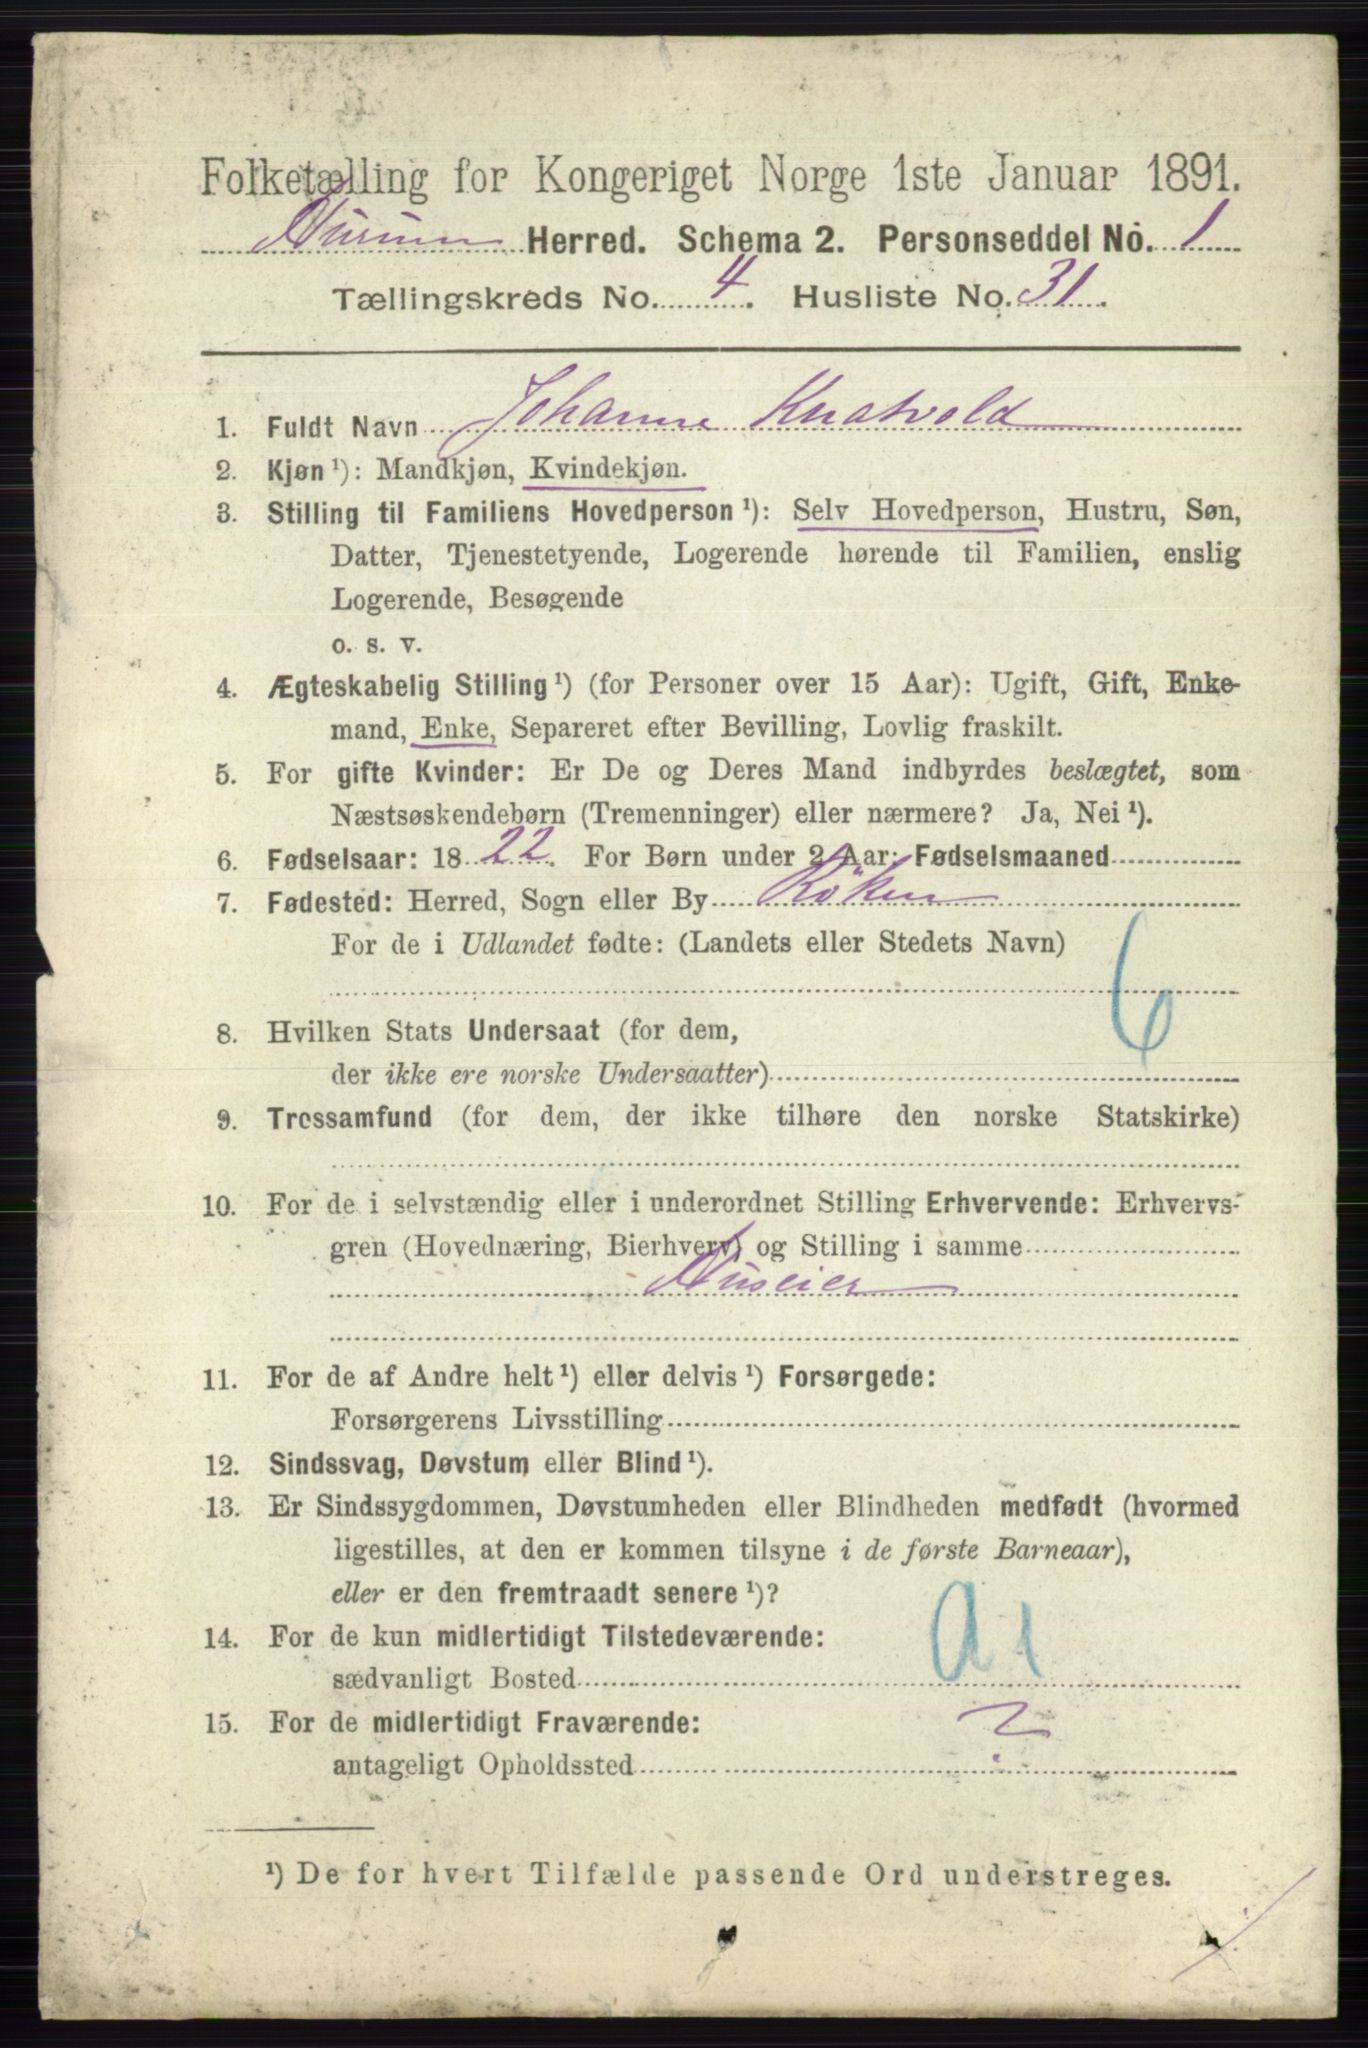 Folketælling for Kongeriget Norge 1ste Januar 1891.
Hurum Herred. Schema 2. Personseddel No. 1
Tællingskreds No. 4. Husliste No. 31.
1. Fuldt Navn Johanne Knatvold
2. Kjøn ¹): Mandkjøn, Kvindekjøn.
3. Stilling til Familiens Hovedperson ¹): Selv Hovedperson, Hustru, Søn,
Datter, Tjenestetyende, Logerende hørende til Familien, enslig
Logerende, Besøgende
o. s. v.
4. Ægteskabelig Stilling ¹) (for Personer over 15 Aar): Ugift, Gift, Enke-
mand, Enke, Separeret efter Bevilling, Lovlig fraskilt.
5. For gifte Kvinder: Er De og Deres Mand indbyrdes beslægtet, som
Næstsøskendebørn (Tremenninger) eller nærmere? Ja, Nei ¹).
6. Fødselsaar: 1822. For Børn under 2 Aar: Fødselsmaaned
7. Fødested: Herred, Sogn eller By Röken
For de i Udlandet fødte: (Landets eller Stedets Navn)
6
8. Hvilken Stats Undersaat (for dem,
der ikke ere norske Undersaatter)
9. Trossamfund (for dem, der ikke tilhøre den norske Statskirke)
10. For de i selvstændig eller i underordnet Stilling Erhvervende: Erhvervs-
gren (Hovednæring, Bierhverv) og Stilling i samme
Huseier
11. For de af Andre helt ¹) eller delvis ¹) Forsørgede:
Forsørgerens Livsstilling
12. Sindssvag, Døvstum eller Blind ¹).
13. Er Sindssygdommen, Døvstumheden eller Blindheden medfødt (hvormed
ligestilles, at den er kommen tilsyne i de første Barneaar),
eller er den fremtraadt senere ¹)?
14. For de kun midlertidigt Tilstedeværende:
sædvanligt Bosted
a 1
15. For de midlertidigt Fraværende:
antageligt Opholdssted
?
¹) De for hvert Tilfælde passende Ord understreges.